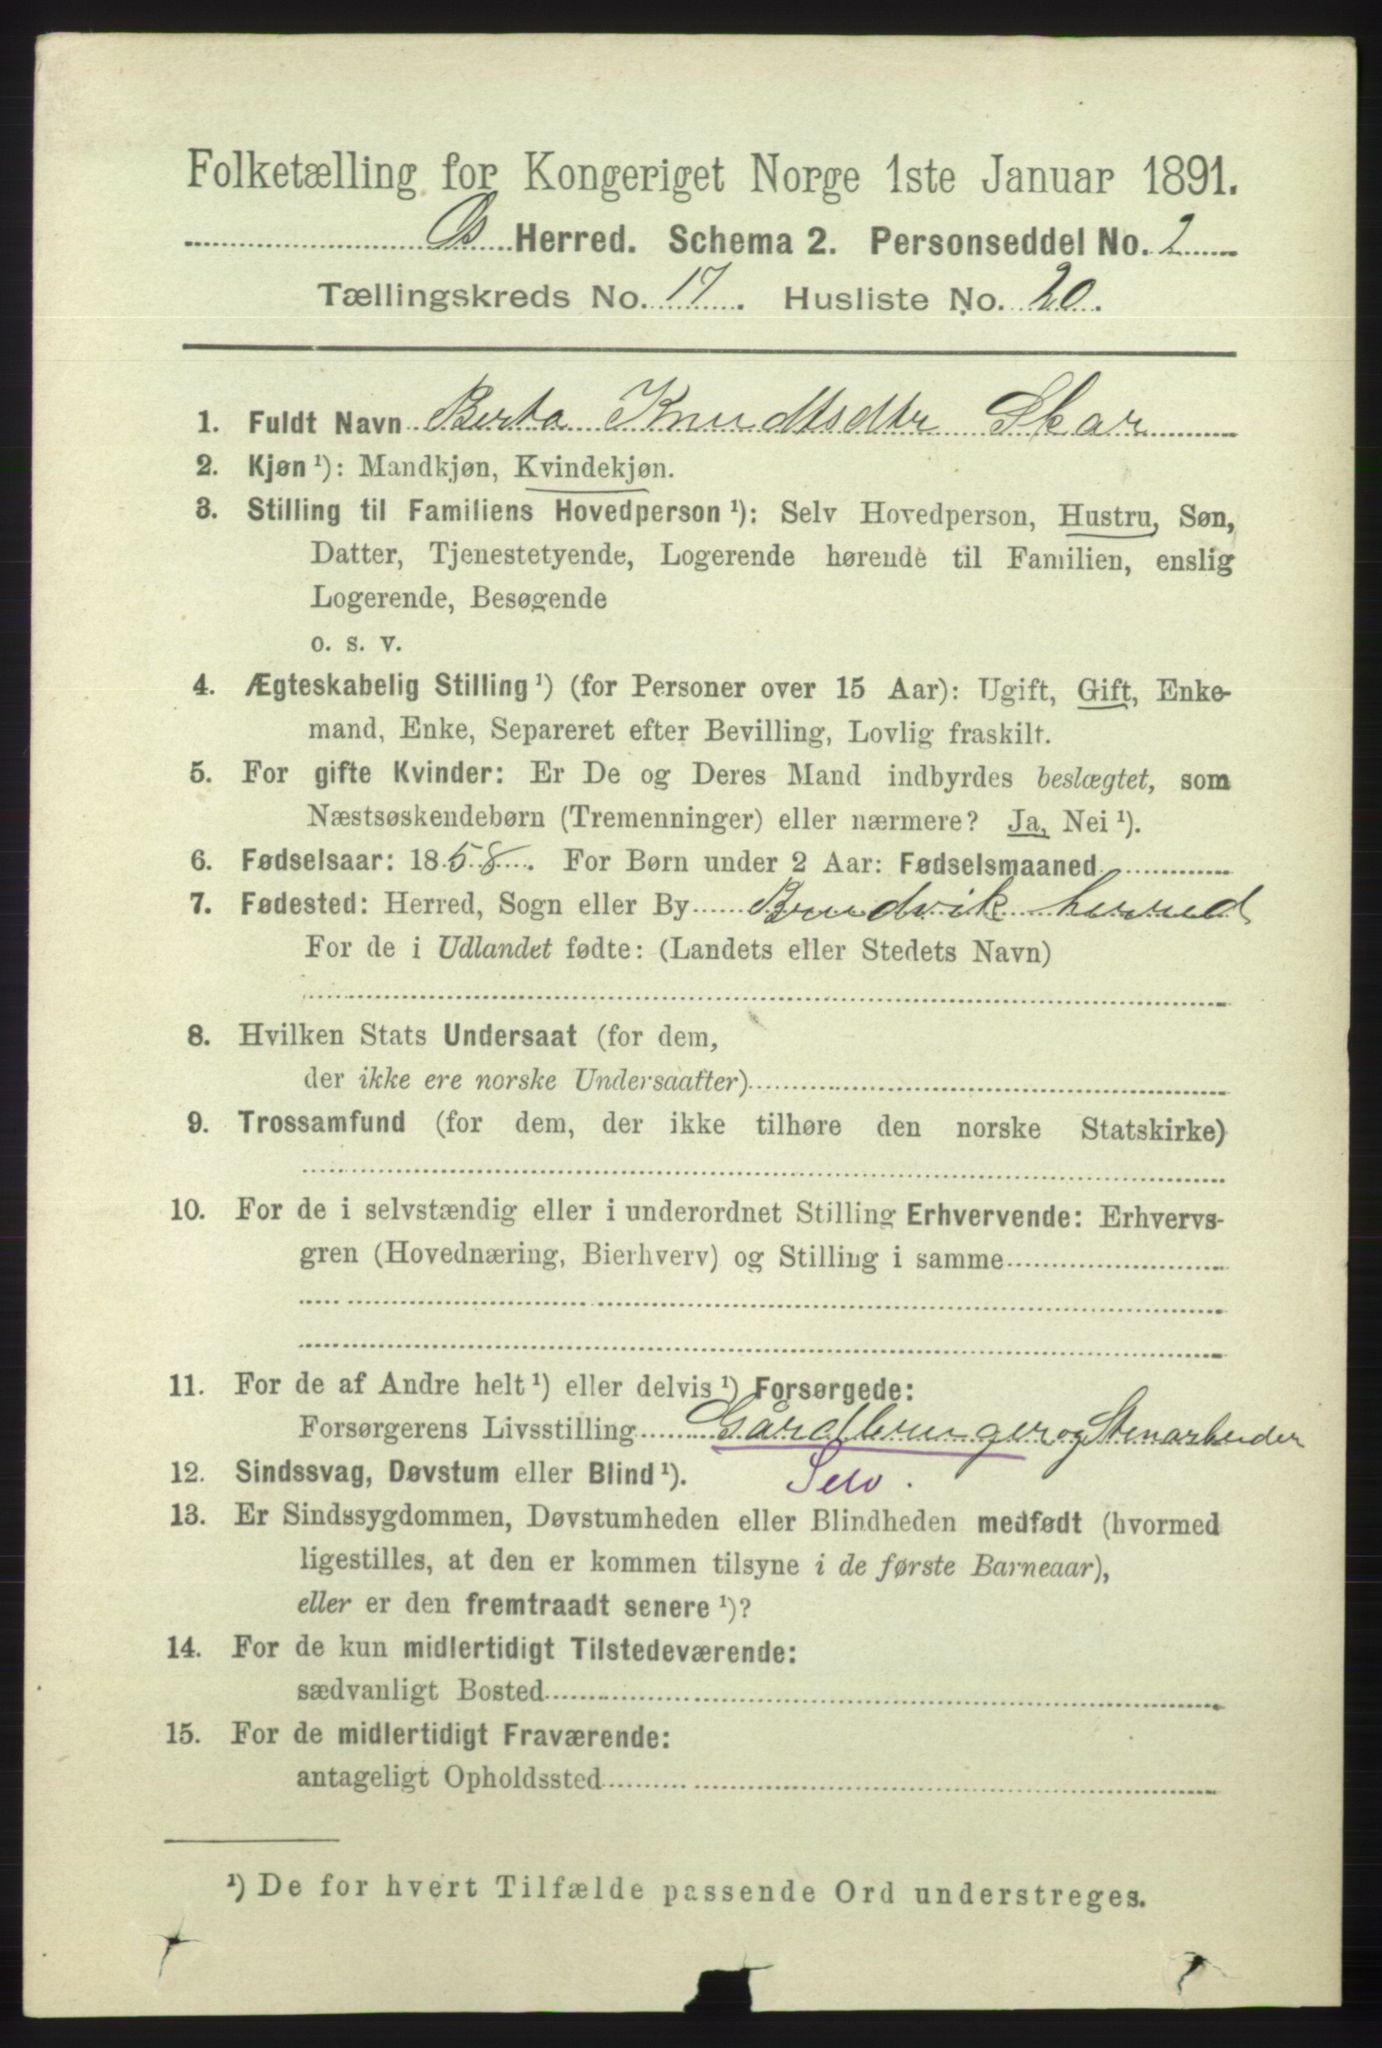 Folketælling for Kongeriget Norge 1ste Januar 1891.
Os Herred. Schema 2. Personseddel No. 2
Tællingskreds No. 17. Husliste No. 20.
1. Fuldt Navn Berta Knudtsdtr Skar
2. Kjøn ¹): Mandkjøn, Kvindekjøn.
3. Stilling til Familiens Hovedperson ¹): Selv Hovedperson, Hustru, Søn,
Datter, Tjenestetyende, Logerende hørende til Familien, enslig
Logerende, Besøgende
o. s. v.
4. Ægteskabelig Stilling ¹) (for Personer over 15 Aar): Ugift, Gift, Enke-
mand, Enke, Separeret efter Bevilling, Lovlig fraskilt.
5. For gifte Kvinder: Er De og Deres Mand indbyrdes beslægtet, som
Næstsøskendebørn (Tremenninger) eller nærmere? Ja, Nei ¹).
6. Fødselsaar: 1858. For Børn under 2 Aar: Fødselsmaaned
7. Fødested: Herred, Sogn eller By Brudvik herred
For de i Udlandet fødte: (Landets eller Stedets Navn)
8. Hvilken Stats Undersaat (for dem,
der ikke ere norske Undersaatter)
9. Trossamfund (for dem, der ikke tilhøre den norske Statskirke)
10. For de i selvstændig eller i underordnet Stilling Erhvervende: Erhvervs-
gren (Hovednæring, Bierhverv) og Stilling i samme
11. For de af Andre helt ¹) eller delvis ¹) Forsørgede:
Forsørgerens Livsstilling Gårdbruger og Stenarbeider
12. Sindssvag, Døvstum eller Blind ¹). Selv.
13. Er Sindssygdommen, Døvstumheden eller Blindheden medfødt (hvormed
ligestilles, at den er kommen tilsyne i de første Barneaar),
eller er den fremtraadt senere ¹)?
14. For de kun midlertidigt Tilstedeværende:
sædvanligt Bosted
15. For de midlertidigt Fraværende:
antageligt Opholdssted
¹) De for hvert Tilfælde passende Ord understreges.